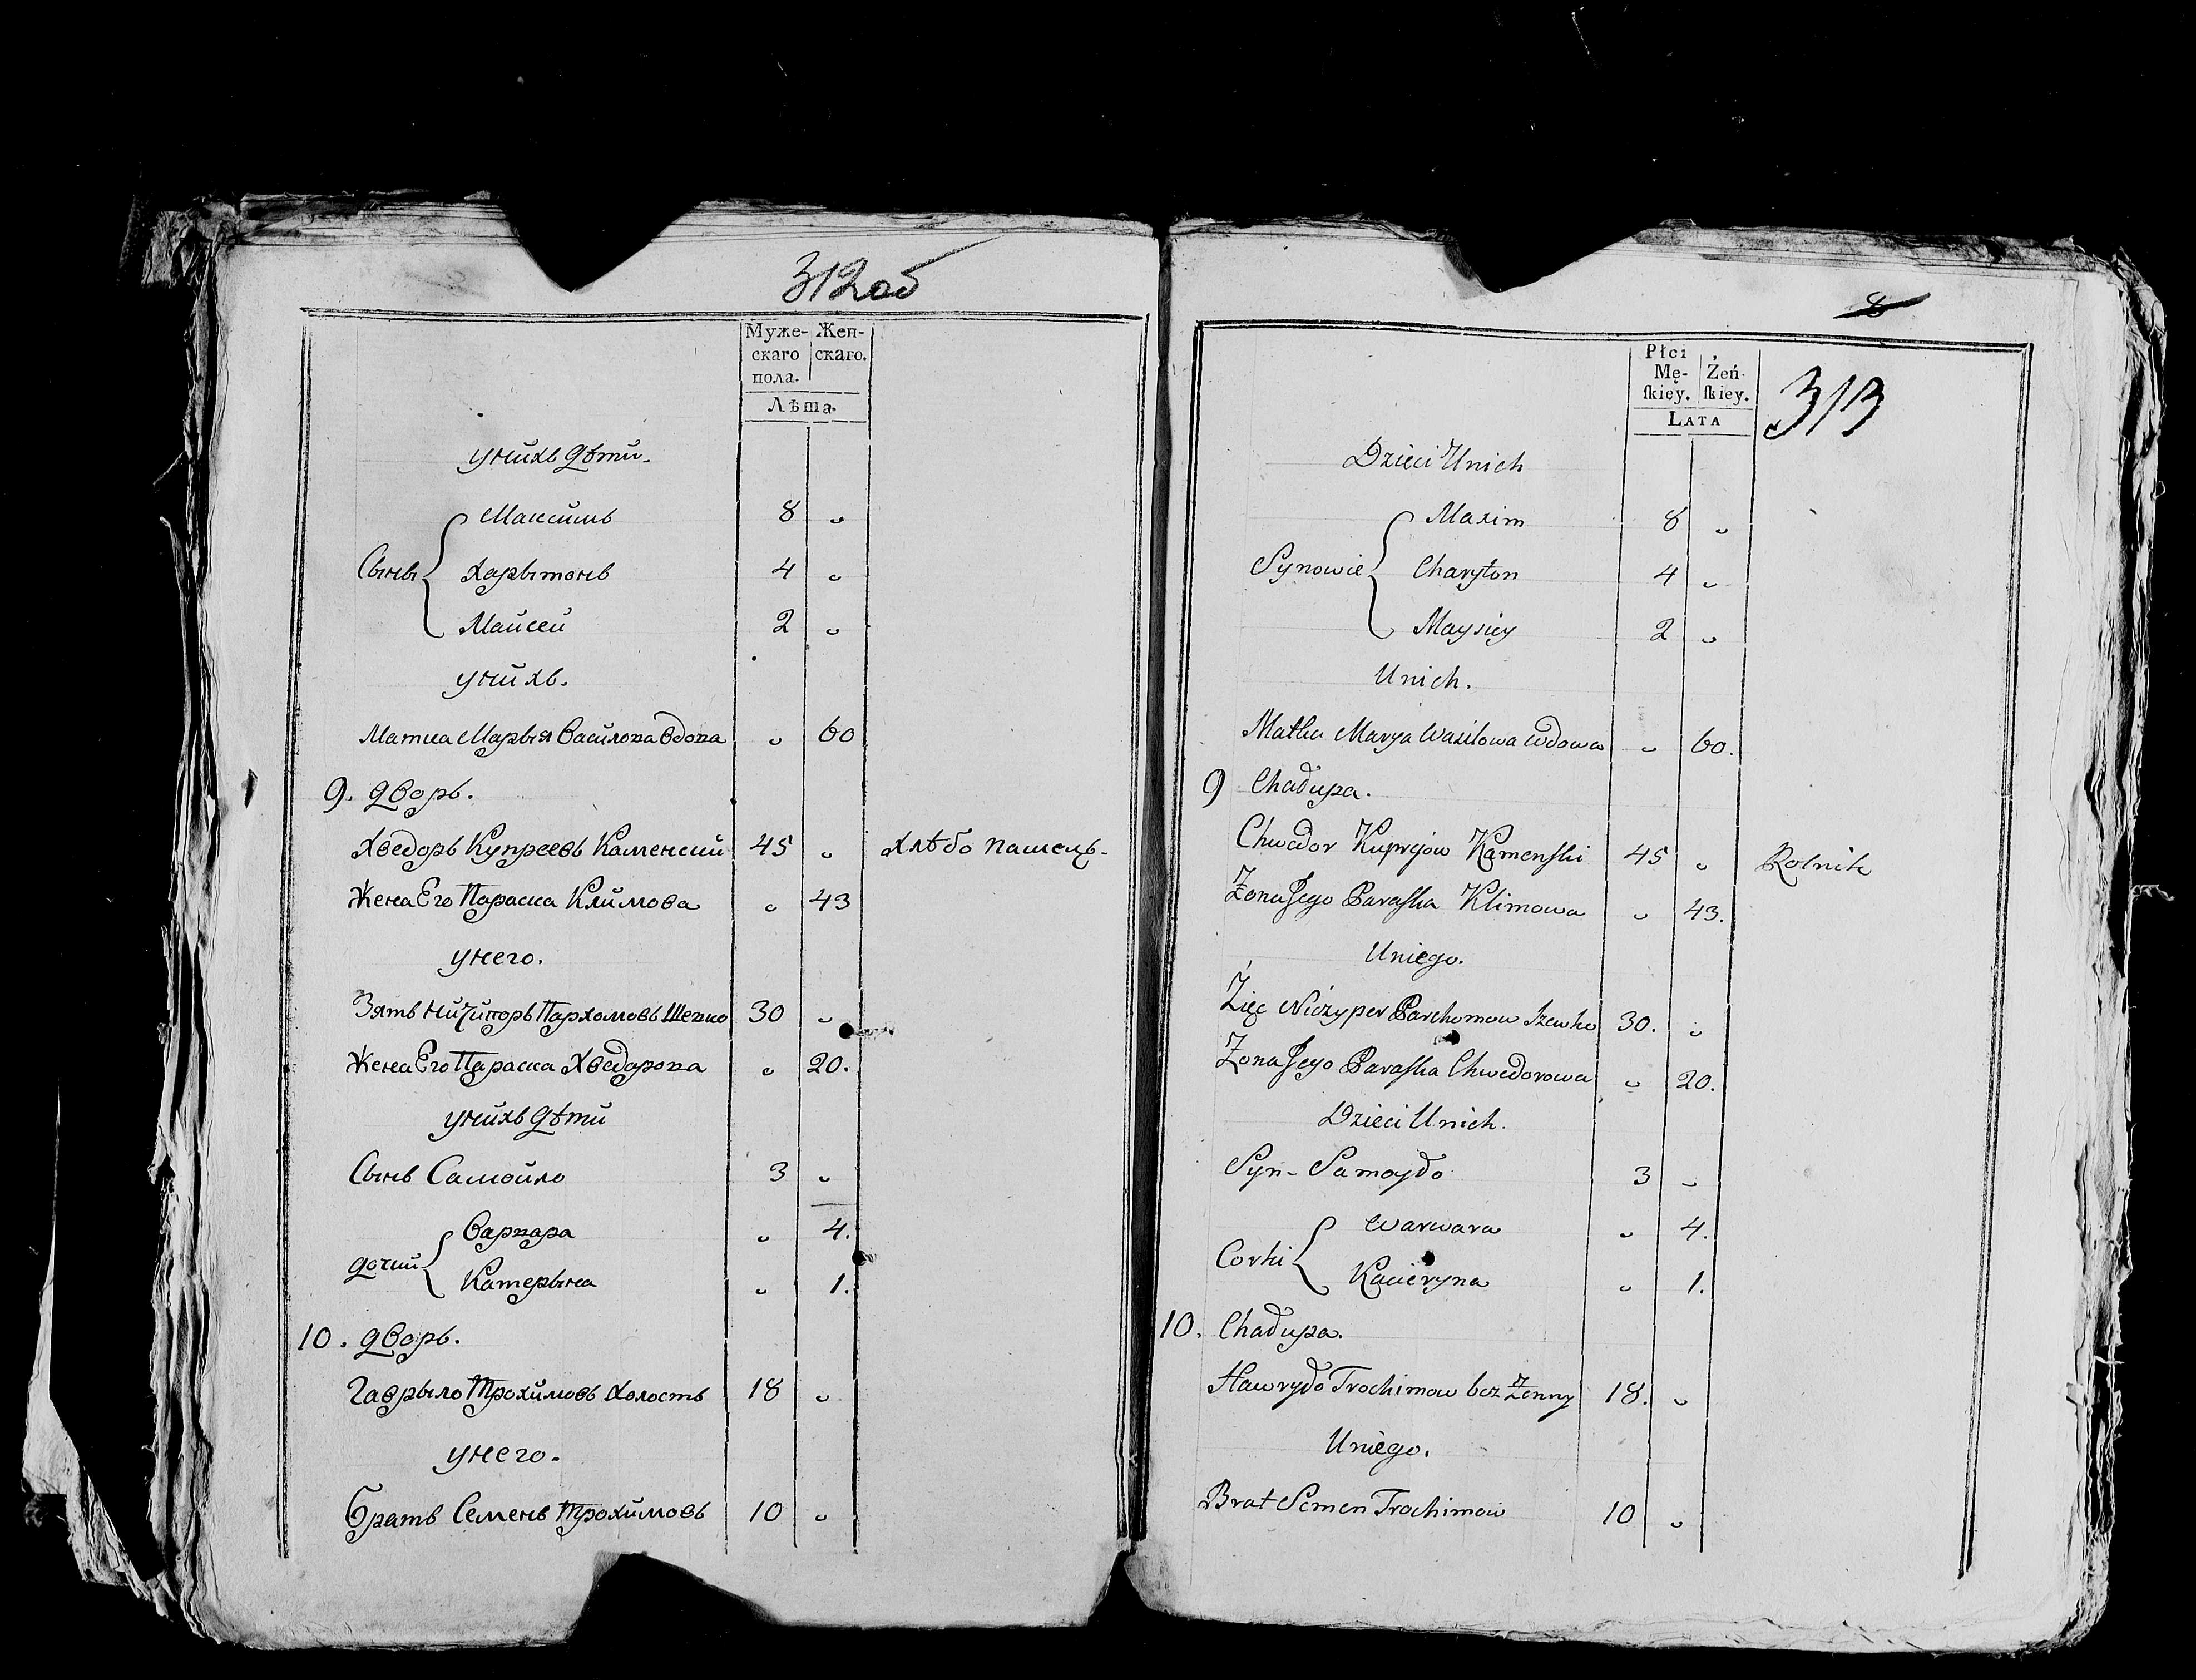 312об
Муже- Жен-
скаго скаго.
пола.
Лѣта.
унихъ дѣти.
Максимъ 8 "
Сыны Харытонъ 4 "
Маисей 2 "
унихъ.
Матка Марыя Василова вдова " 60
9. дворъ.
Хведоръ Купреевъ Каменский 45 " Хлѣбопашецъ.
Жена Его Параска Климова " 43
унего.
Зять Ничипоръ Пархомовъ Шевко 30 "
Жена Его Параска Хведорова " 20.
унихъ дѣти
Сынъ Самойло 3 "
Варвара " 4.
дочки
Катерына " 1.
10. дворъ.
Гаврыло Трохимовъ холостъ 18 "
унего.
братъ Семенъ Трохимовъ 10 "
8
Płci
Mę- Żeń-
ſkiey. ſkiey.
313
LATA
Dzieci Unich
Maxim 8 "
Synowie Charyton 4 "
Maysiey 2 "
Unich.
Matka Marya Wasilowa Wdowa " 60.
9 Chałupa.
Chwedor Kuprejow Kamenſki 45 " Rolnik
Żona Jego Paraſka Klimowa " 43.
Uniego.
Zięc Niczyper Parchomow Szewko 30. "
Żona Jego Paraſka Chwedorowa " 20.
Dzieci Unich.
Syn - Samoyło 3 "
Warwara " 4.
Corki
Kacieryna " 1.
10. Chałupa.
Hawryło Trochimow bez Żenny 18. "
Uniego.
Brat Semen Trochimow 10 "